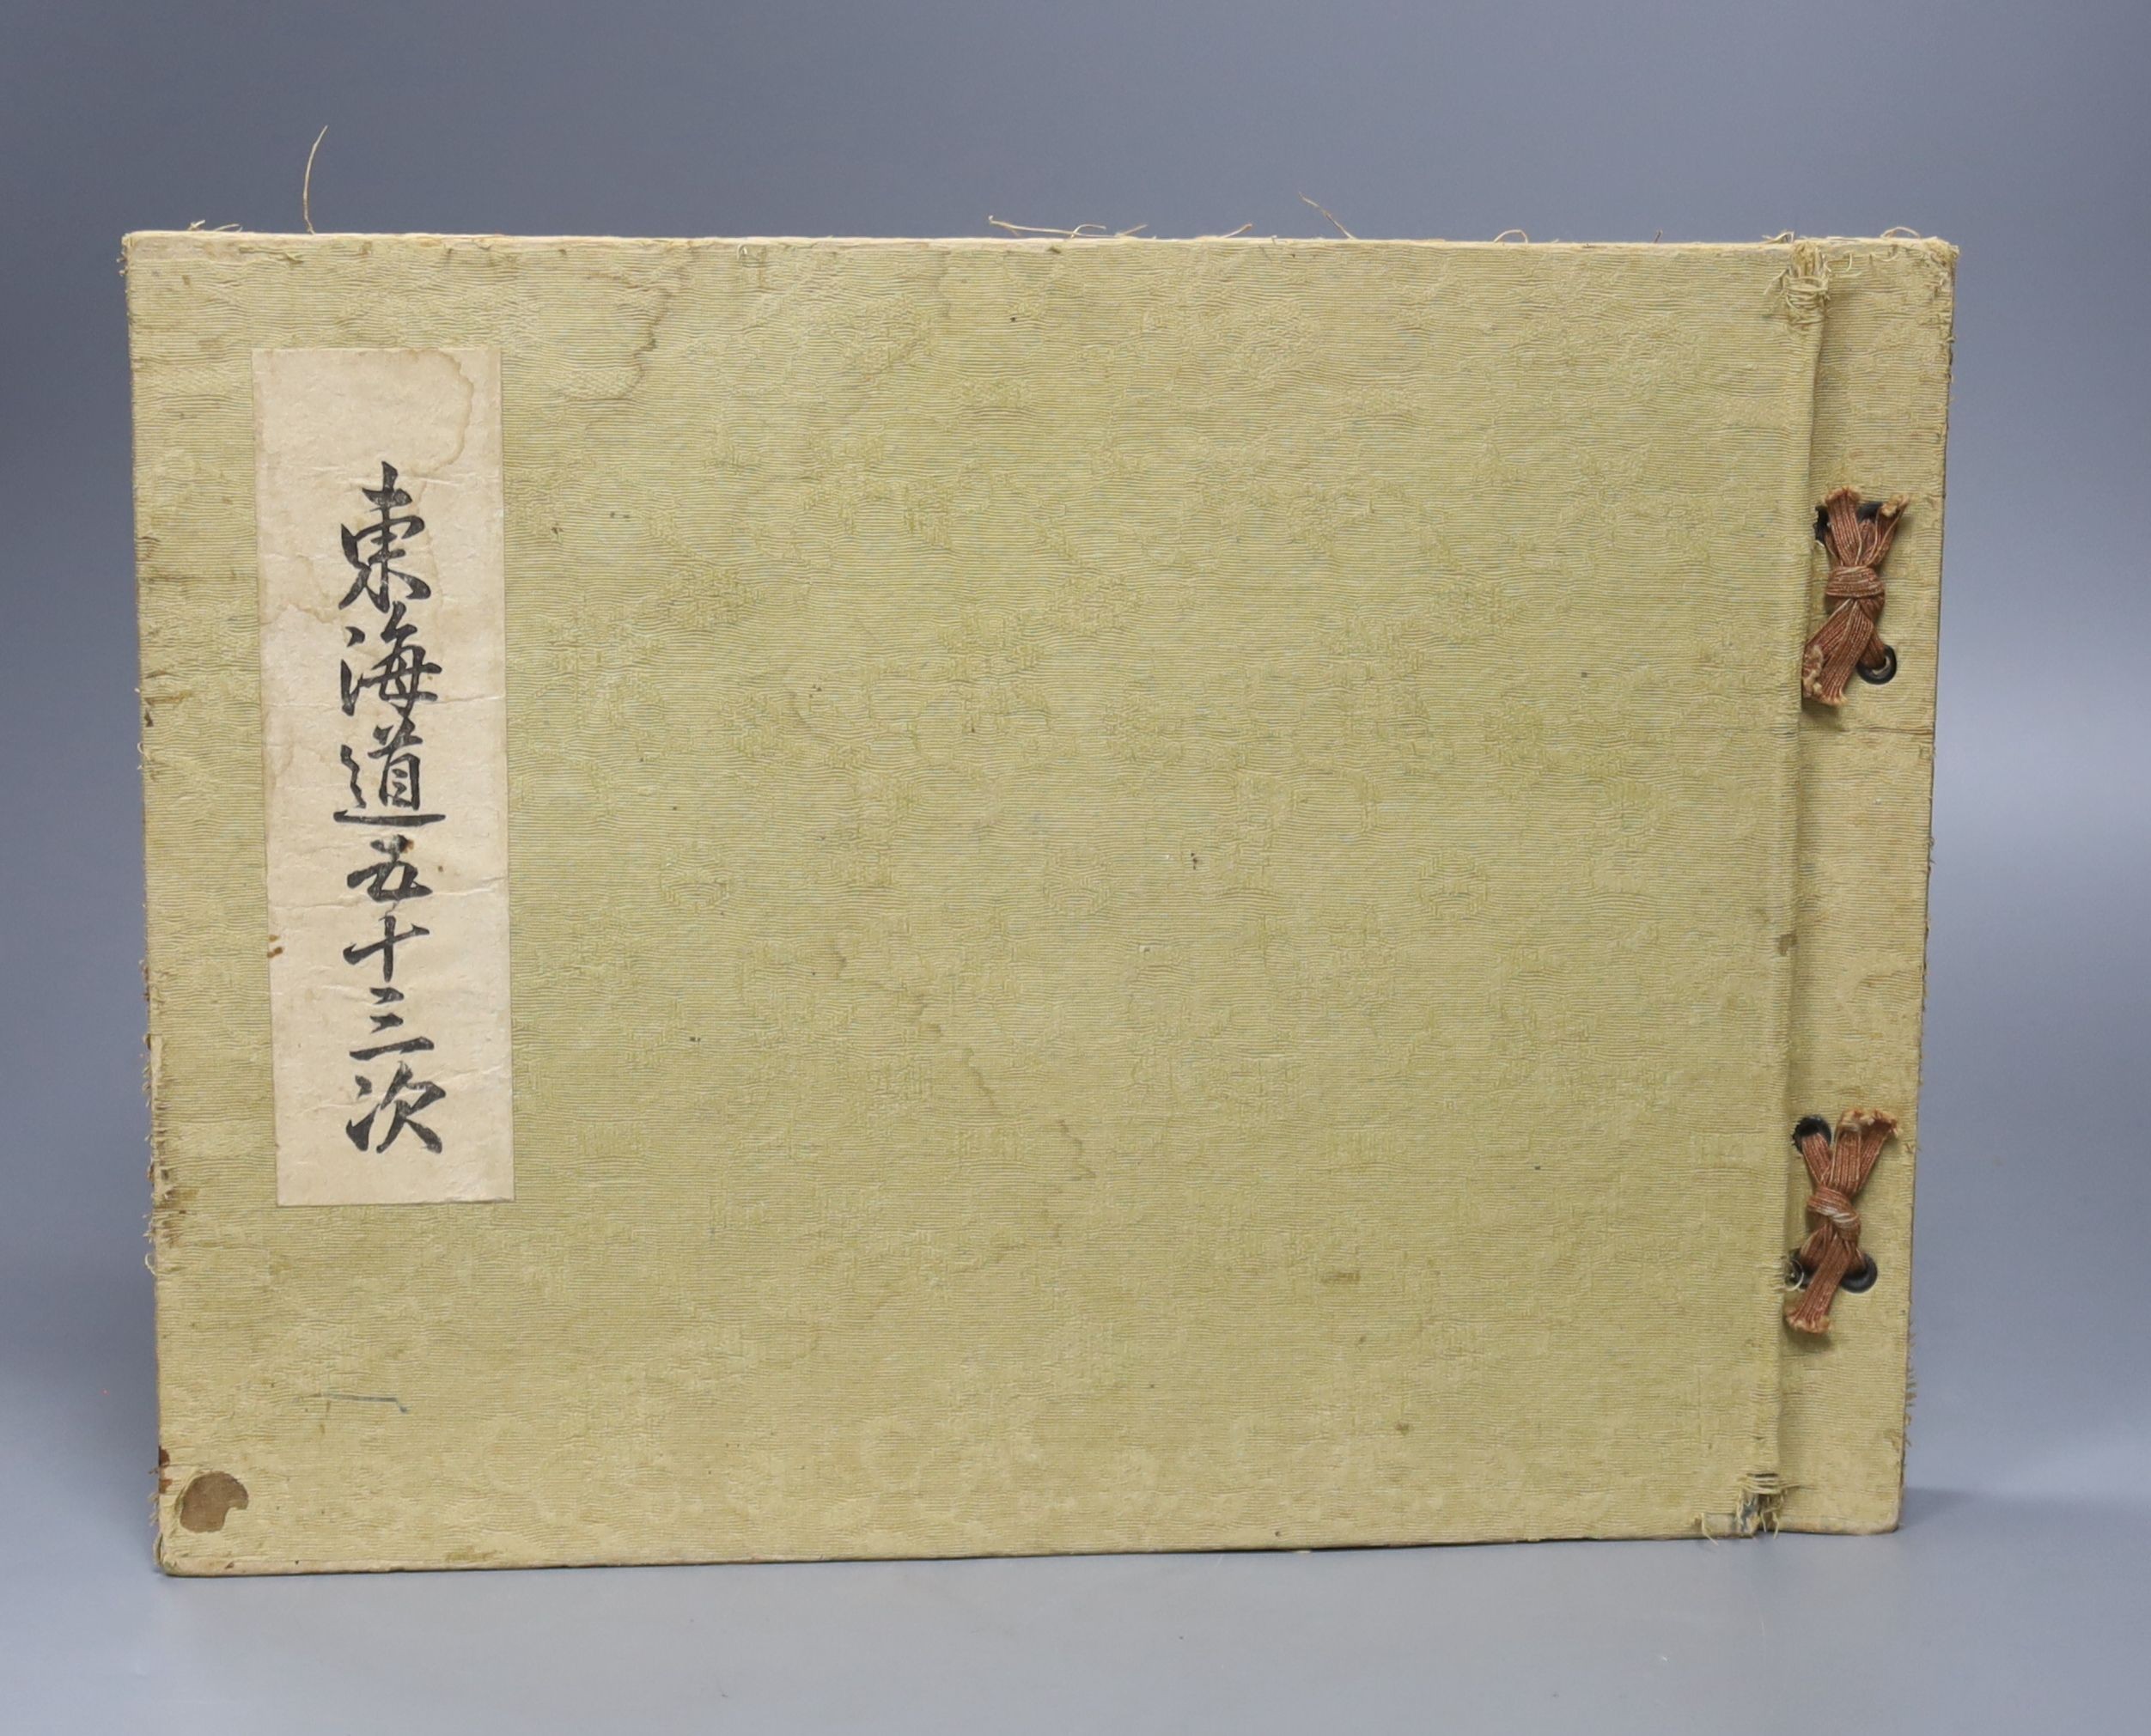 東海道五十三次